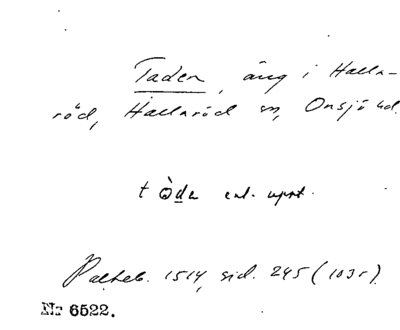 Taden, äng i Halla-
röd, Hallaröd sn, Onsjö hd.
t ò̧de enl. uppt.
Palteb. 1514, sid. 245 (103r).
Nr 6522.